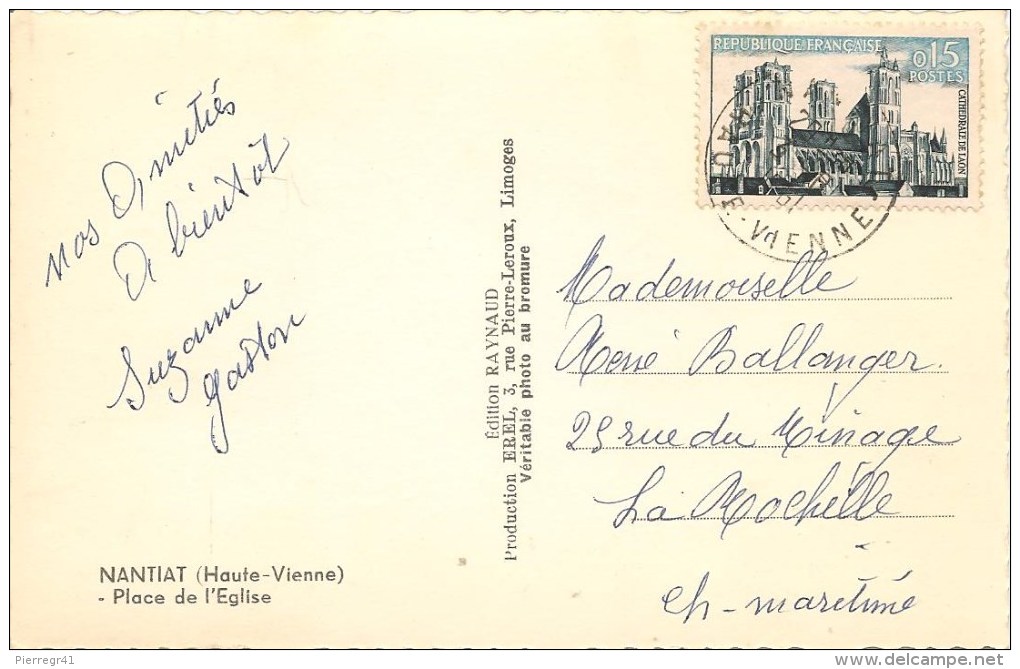 RÉPUBLIQUE FRANÇAISE
0,15
POSTES
CATHEDRALE DE LAON
VIENNE
nos Amitiés
A bientôt
Suzanne
gaston
Édition RAYNAUD
Production EREL, 3, rue Pierre-Leroux, Limoges
Véritable photo au bromure
Mademoiselle
René Ballanger.
25 rue du Minage
La Rochelle
Ch-maritime
NANTIAT (Haute-Vienne)
- Place de l'Eglise
Pierregr41
www.delcampe.net